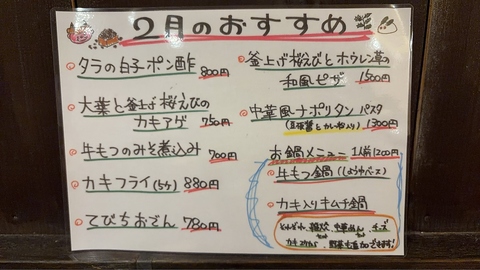 2月のおすすめ
タラの白子ポン酢 800円
大葉と釜上げ桜えびの
カキアゲ 750円
牛もつのみそ煮込み 700円
カキフライ(5ケ) 880円
てびちおでん 780円
釜上げ桜えびとホウレン草の
和風ピザ 1500円
中華風ナポリタン パスタ
(豆板醤とカレー粉入り) 1300円
お鍋メニュー 1人前1200円
牛もつ鍋(しょうゆベース)
カキ入りキムチ鍋
それぞれ、雑炊、中華めん、チーズ
できます!